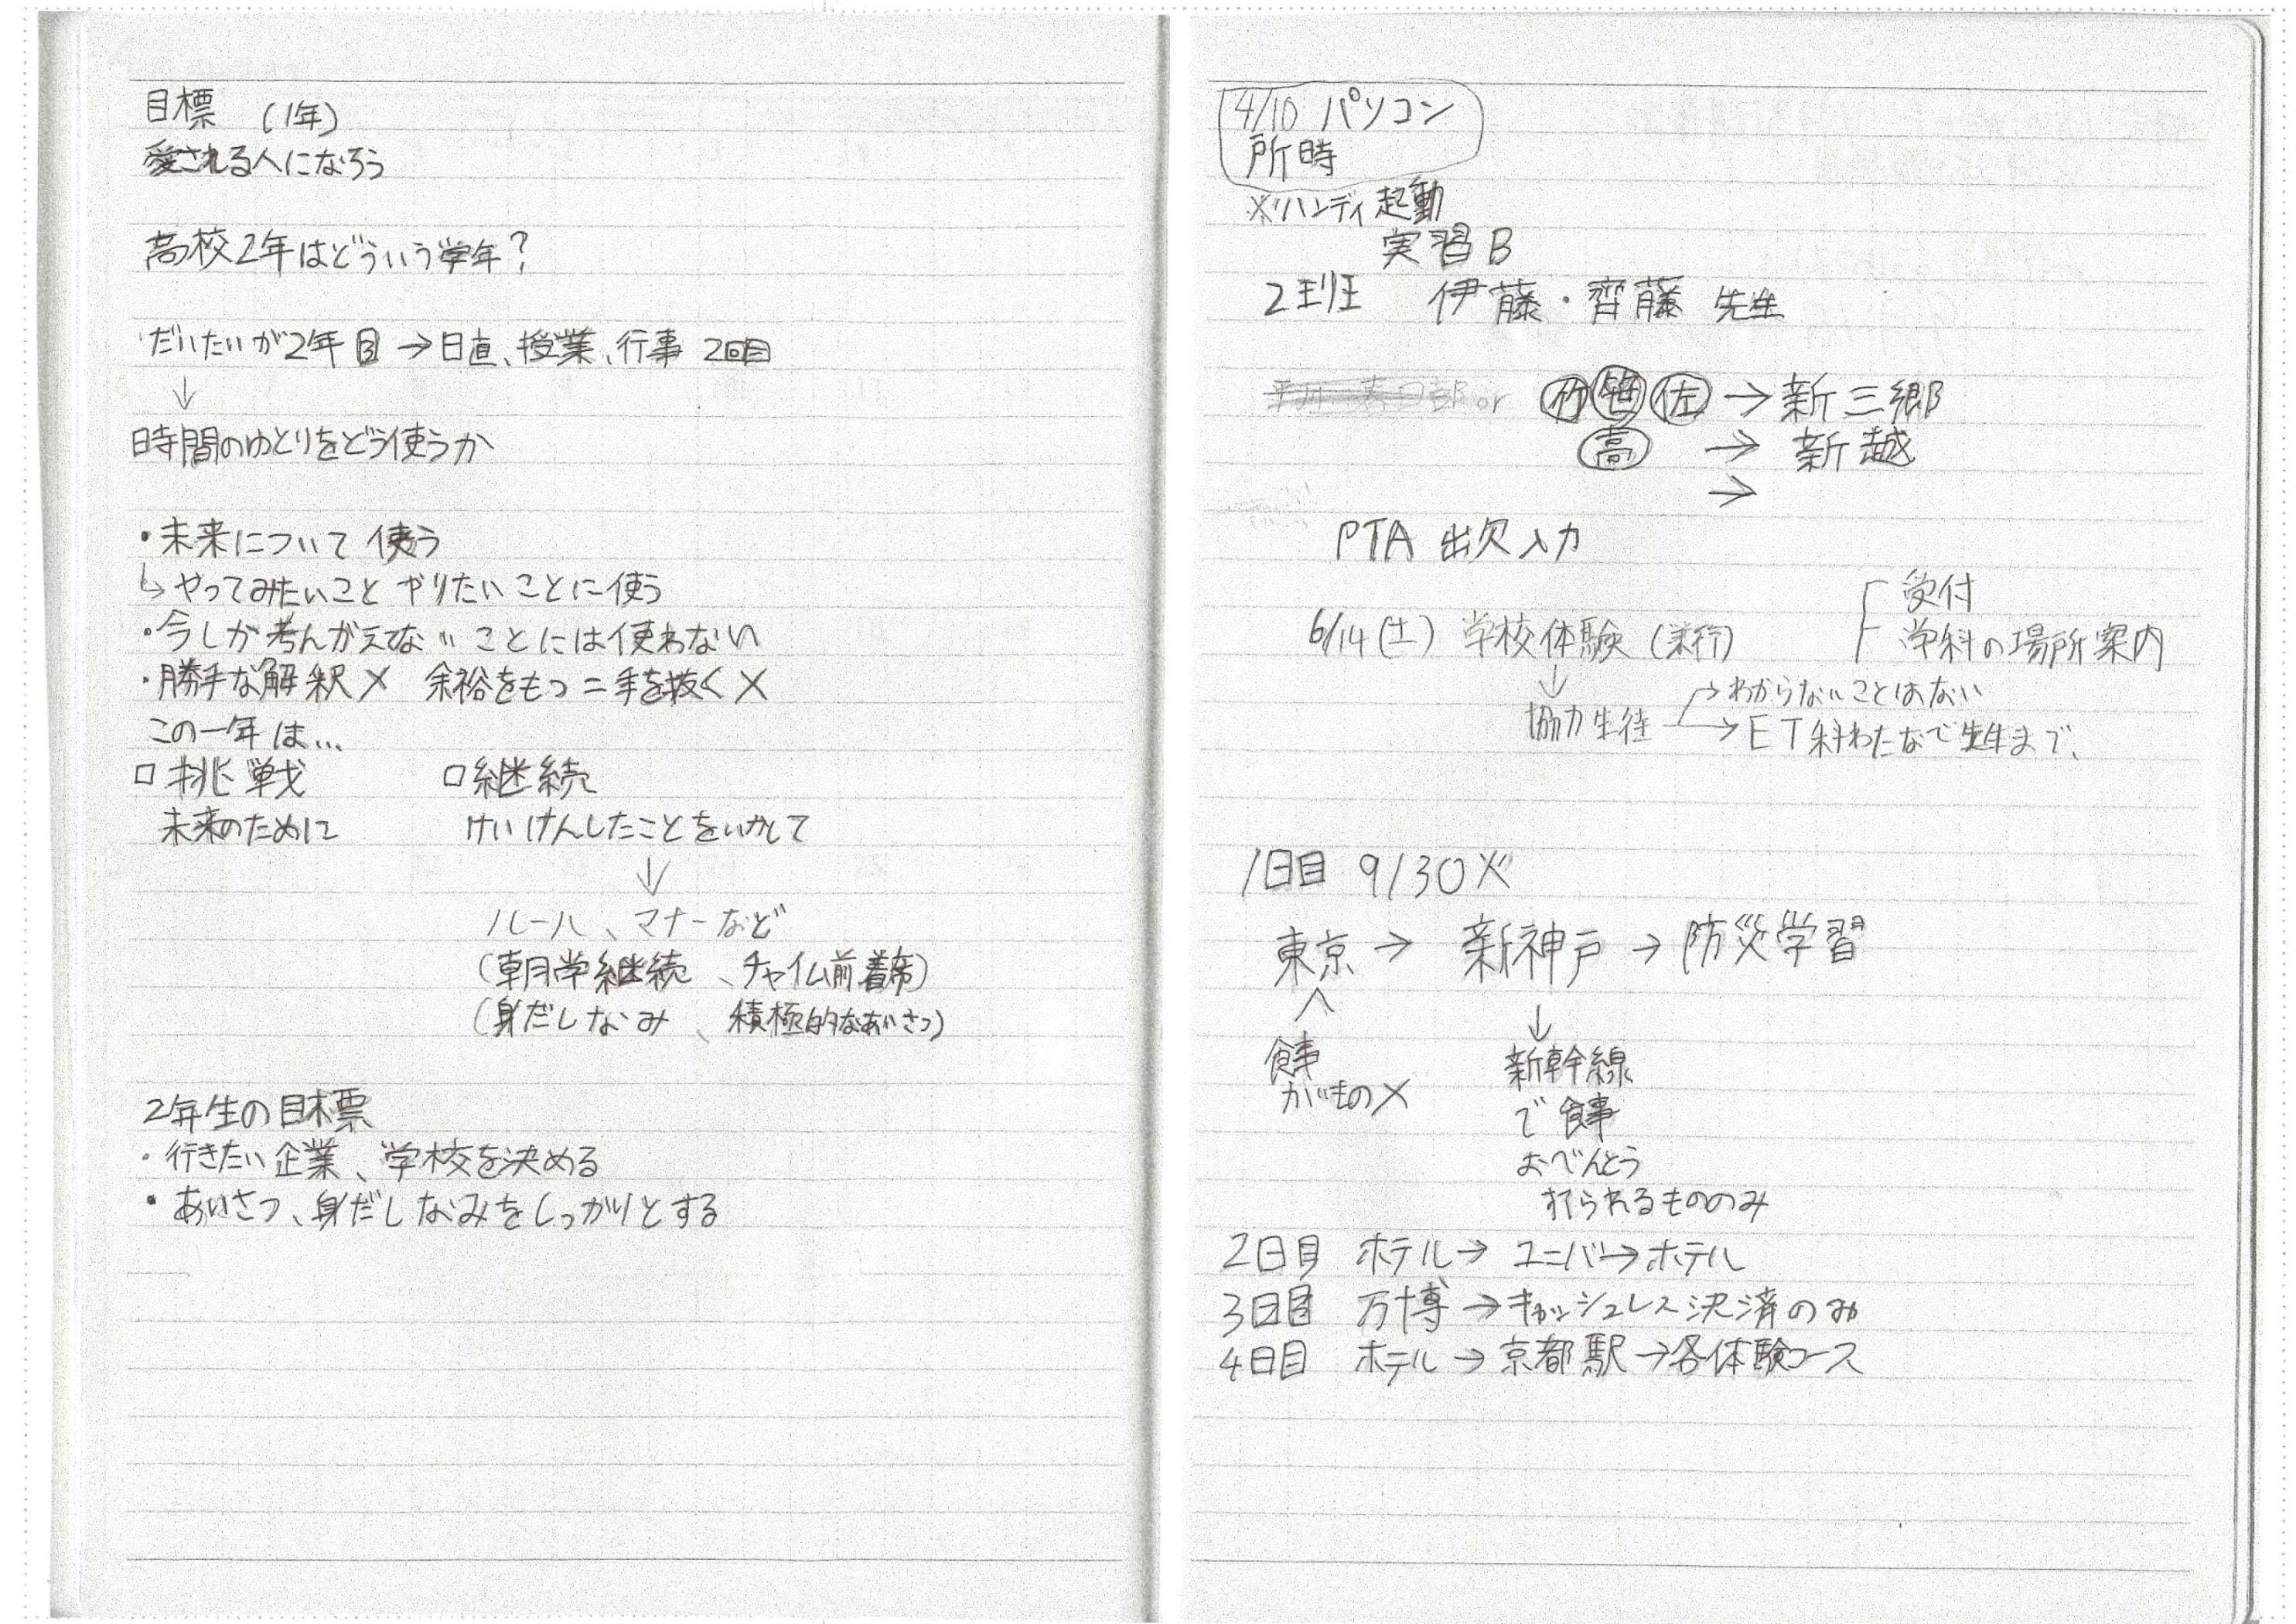 目標 (1年)
愛される人になろう
高校2年はどういう学年?
だいたいが2年目→日直、授業、行事 2回目
↓
時間のゆとりをどう使うか
・未来について使う
↳やってみたいこと やりたいことに使う
・今しか考んがえてないことには使わない
・勝手な解釈✕ 余裕をもつ=手を抜く✕
この一年は…
□挑戦 □継続
未来のために けいけんしたことをいかして
↓
ルール、マナーなど
(朝学継続、チャイム前着席)
(身だしなみ、積極的なあいさつ)
2年生の目標
・行きたい企業、学校を決める
・あいさつ、身だしなみをしっかりとする
4/10 パソコン
所時
※ハンディ起動
実習B
2班 伊藤・齊藤 先生
or 竹 笹 佐 →新三郷
高 → 新越
→
PTA 出欠入力
受付
6/14(土) 学校体験 学科の場所案内
↓ →わからないことはない
協力生徒 →ET科わたなで先生まで、
1日目 9/30火
東京 → 新神戸 → 防災学習
へ ↓
食事 新幹線
かいもの✕ で食事
おべんとう
打られるもののみ
2日目 ホテル→ ユニバ→ホテル
3日目 万博→キャッシュレス決済のみ
4日目 ホテル→京都駅→各体験コース